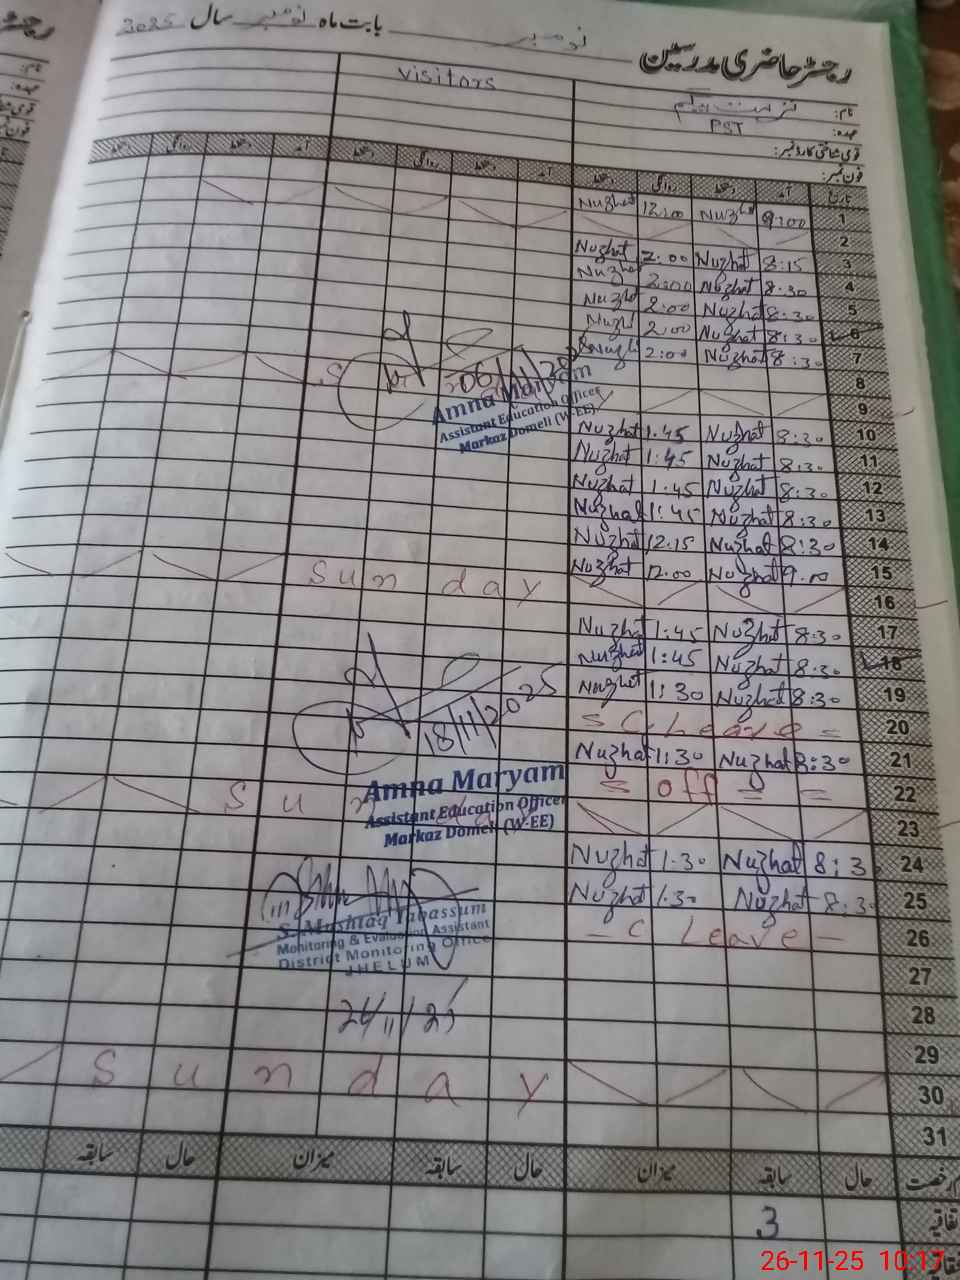 رجسٹر حاضری مدرسین نومبر بابت ماہ نومبر سال 2025
نام: visitors
عہدہ: PST
قومی شناختی کارڈ نمبر:
فون نمبر:
تاریخ آمد دستخط روانگی دستخط آمد دستخط روانگی دستخط آمد دستخط روانگی دستخط
1 9:00 Nuzhat 12:00 Nuzhat
2
3 8:15 Nuzhat 2.00 Nuzhat
4 8:30 Nuzhat 2:00 Nuzhat
5 8:30 Nuzhat 2:00 Nuzhat
6 8:30 Nuzhat 2:00 Nuzhat
7 8:30 Nuzhat 2:00 Nuzhat
8
9 S
06/11/2025
Amna Maryam
Assistant Education Officer
Markaz Domeli (W-EE)
10 8:30 Nuzhat 1.45 Nuzhat
11 8:30 Nuzhat 1:45 Nuzhat
12 8:30 Nuzhat 1:45 Nuzhat
13 8:30 Nuzhat 1:45 Nuzhat
14 8:30 Nuzhat 12.15 Nuzhat
15 9.00 Nuzhat 12.00 Nuzhat
16 Sunday
17 8:30 Nuzhat 1:45 Nuzhat
18 8:30 Nuzhat 1:45 Nuzhat
19 8:30 Nuzhat 1:30 Nuzhat
20 = C Leave =
21 8:30 Nuzhat 1:30 Nuzhat
22 = off = =
23 Sun
18/11/2025
Amna Maryam
Assistant Education Officer
Markaz Domeli (W-EE)
24 8:3 Nuzhat 1.30 Nuzhat
25 8:30 Nuzhat 1.30 Nuzhat
26 – C Leave –
S. Mushtaq Tabassum
Monitoring & Evaluation Assistant
District Monitoring Office
JHELUM
27
28
29
30 Sunday
31
رخصت حال سابقہ میزان حال سابقہ میزان حال سابقہ
اتفاقیہ 3
26-11-25 10:17